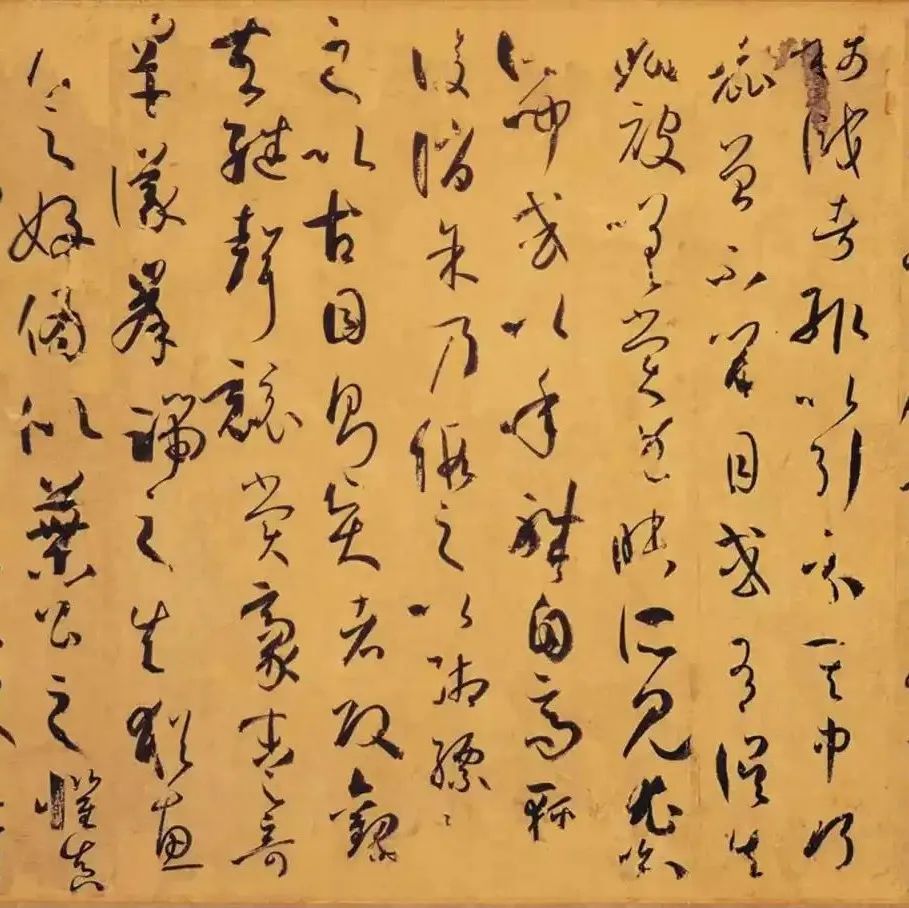 稱識者輒以引示其中巧
麗曾不留目或有誤失
翻被嗟賞既昧所見尤喻
所聞或以年職自高輕
致陵誚余乃假之以緗縹
之以古目則賢者改觀
夫繼聲競賞豪末之奇
罕議鋒端之失猶惠
侯之好偽似葉公之懼真